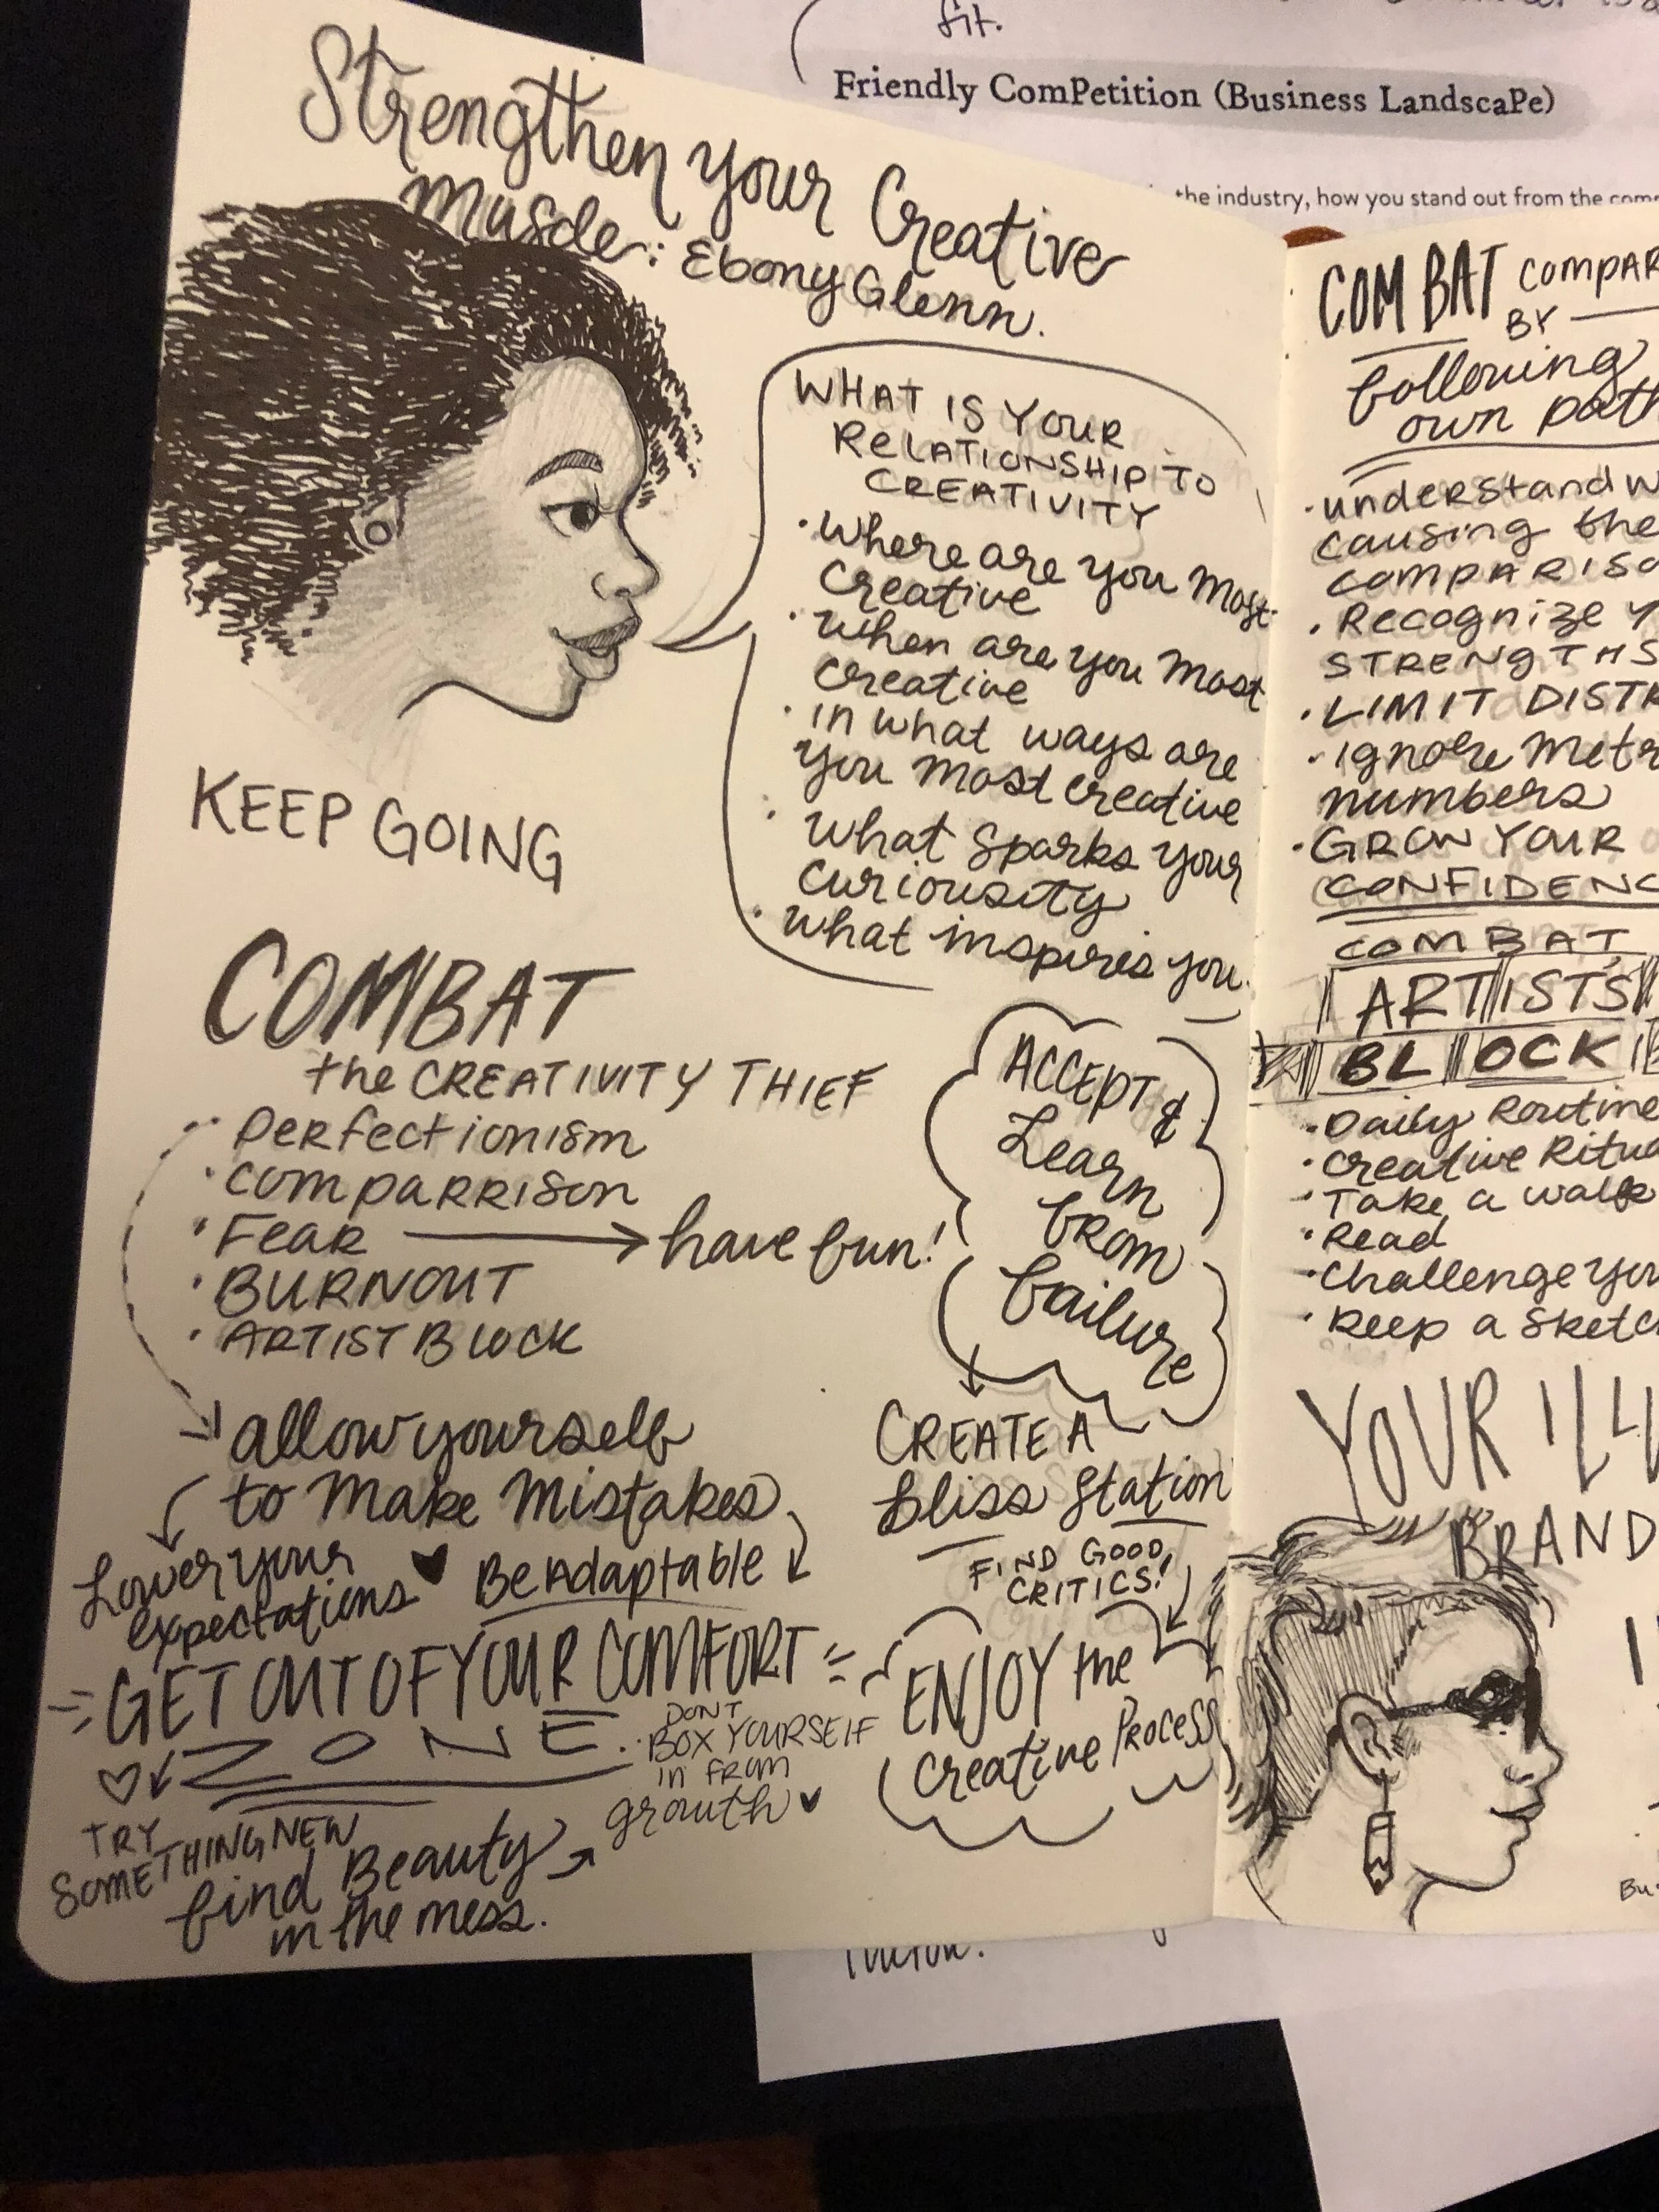 fit.
Friendly ComPetition (Business LandscaPe)
the industry, how you stand out from the
Strengthen your Creative
Muscle: Ebony Glenn.
WHAT IS YOUR
RELATIONSHIP TO
CREATIVITY
• Where are you most
creative
• When are you most
creative
• in what ways are
you most creative
• What sparks your
curiousity
• what inspires you.
KEEP GOING
COMBAT
the CREATIVITY THIEF
• Perfectionism
• comparrison
• Fear → have fun!
• BURNOUT
• ARTIST BLOCK
ACCEPT &
Learn
from
failure
allow yourself
to make mistakes
Lower your
expectations ♥ Be Adaptable
CREATE A
bliss station
FIND GOOD
CRITICS!
GET OUT OF YOUR COMFORT
ZONE.
DONT
BOX YOURSELF
in FROM
growth ♥
ENJOY the
creative Process
TRY
SOMETHING NEW
find Beauty
in the mess.
COMBAT COMPAR
BY
following
own path
• understand w
causing the
comparIso
• Recognize Y
STRENGTHS
• LIMIT DISTR
• ignore metr
numbers
• GROW YOUR
CONFIDENC
COMBAT
ARTISTS
BLOCK
• Daily Routine
• creative Ritua
• Take a walk
• Read
• Challenge you
• Keep a sketc
YOUR ILLU
BRAND